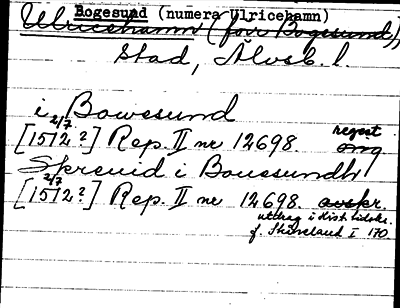 Bogesund (numera Ulricehamn)
Ulricehamn (förr Bogesund),
stad, Älvsb. l.
i Bowesund
2/7
[1512?] Rep. II nr 12698. regest
orig
Skreuid i Bouesundh
2/7
[1512?] Rep. II nr 12698. avskr.
utdrag i hist. tidskr.
f. Skåneland I 170